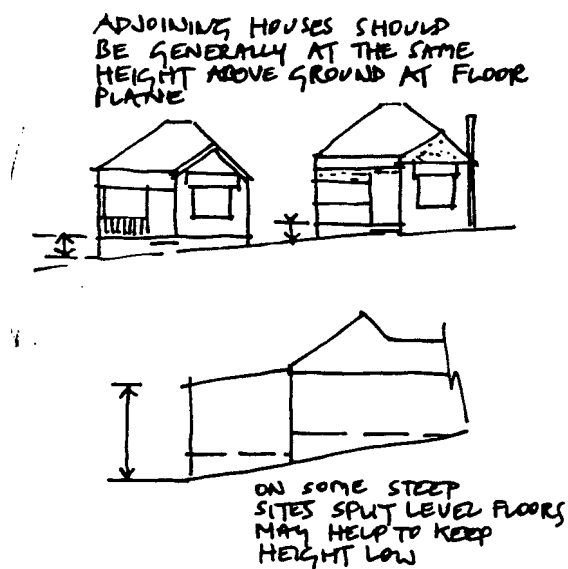 ADJOINING HOUSES SHOULD
BE GENERALLY AT THE SAME
HEIGHT ABOVE GROUND AT FLOOR
PLANE
ON SOME STEEP
SITES SPLIT LEVEL FLOORS
MAY HELP TO KEEP
HEIGHT LOW